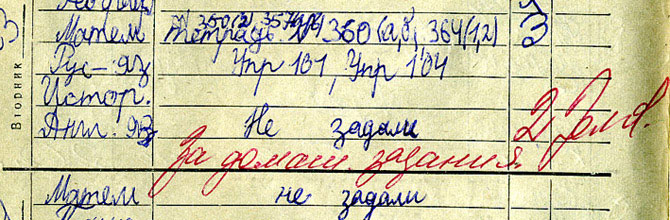 Матем тетрадь № 360(а,б, 364(1,2)
Вторник
Рус-яз Упр 101, Упр 104
Истор.
Англ. яз Не задали 2
За домаш. задания
Матем не задали